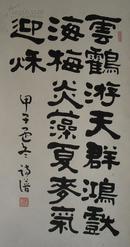 雲鶴游天群鴻戲
海梅炎藻夏麥氣
迎秌
甲子孟冬